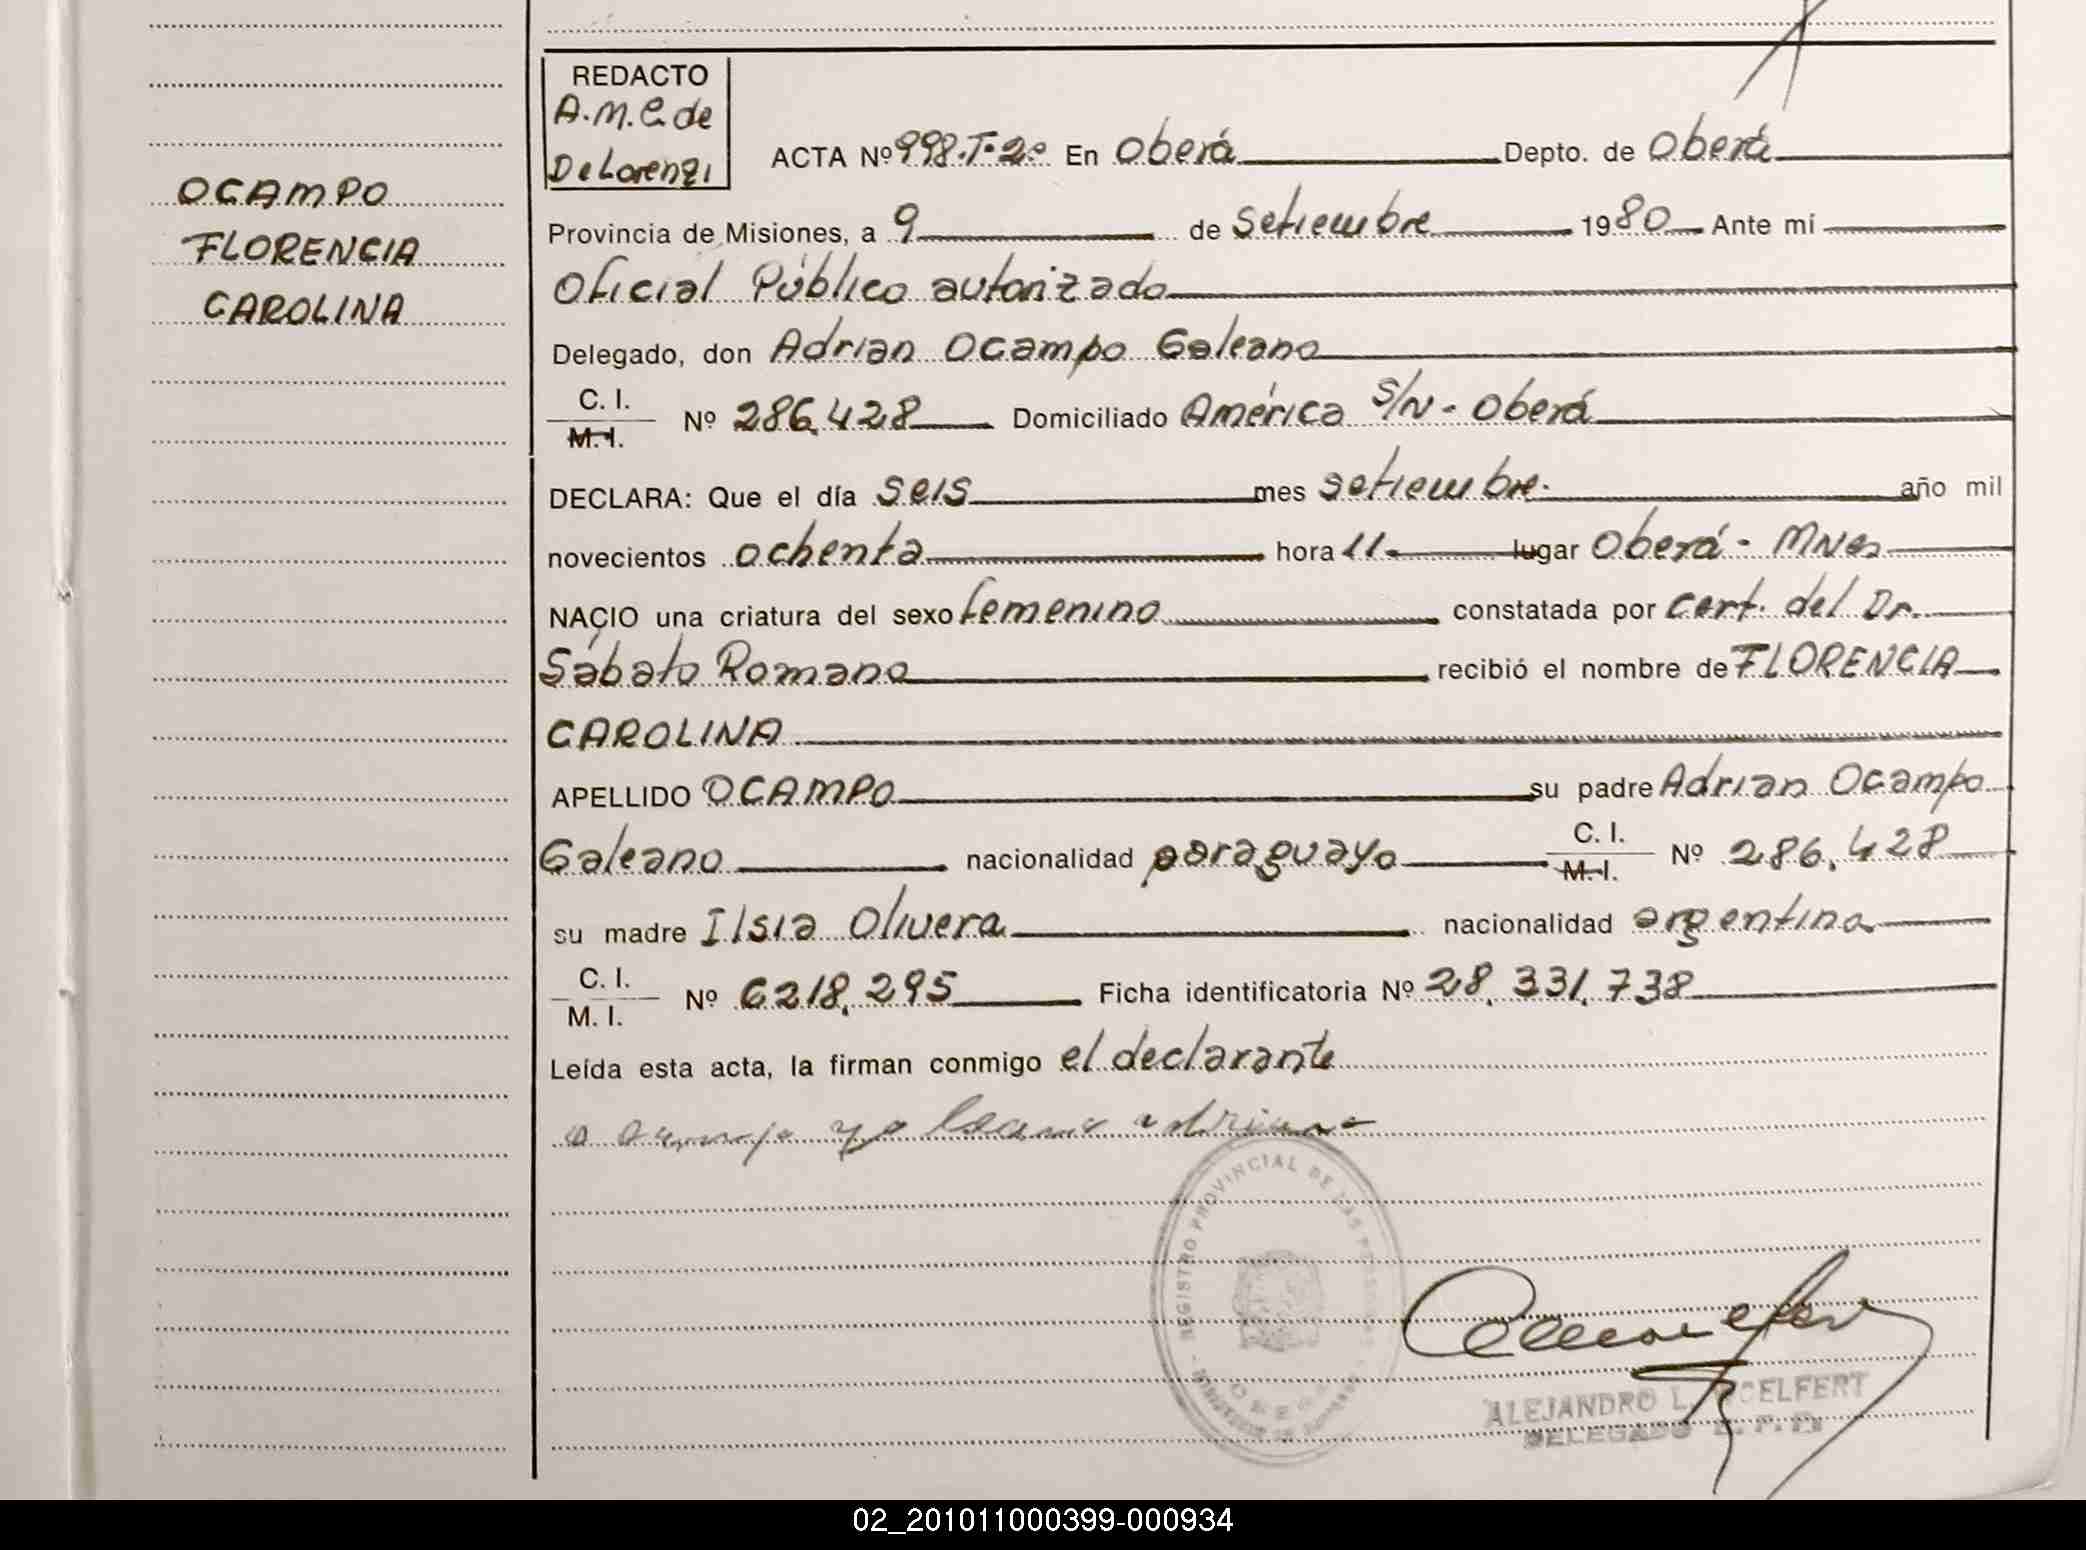 OCAMPO
FLORENCIA
CAROLINA
REDACTO
A.M.C. de
DeLorenzi
ACTA Nº 998.T-2º En Oberá Depto. de Oberá
Provincia de Misiones, a 9 de setiembre 1980 Ante mí
Oficial Público autorizado
Delegado, don Adrian Ocampo Galeano
C. I.
M. I.
Nº 286.428 Domiciliado América S/N - Oberá
DECLARA: Que el día seis mes setiembre. año mil
novecientos ochenta hora 11.- lugar Oberá - Mnes
NACIO una criatura del sexo femenino constatada por cert. del Dr.
Sábato Romano recibió el nombre de FLORENCIA
CAROLINA
APELLIDO OCAMPO su padre Adrian Ocampo
Galeano nacionalidad paraguayo C. I. M. I. Nº 286.428
su madre Ilsia Olivera nacionalidad argentina
C. I.
M. I.
Nº 6218.295 Ficha identificatoria Nº 28.331.738
Leída esta acta, la firman conmigo el declarante
REGISTRO PROVINCIAL DE LAS
ALEJANDRO L.
DELEGADO
02_201011000399-000934